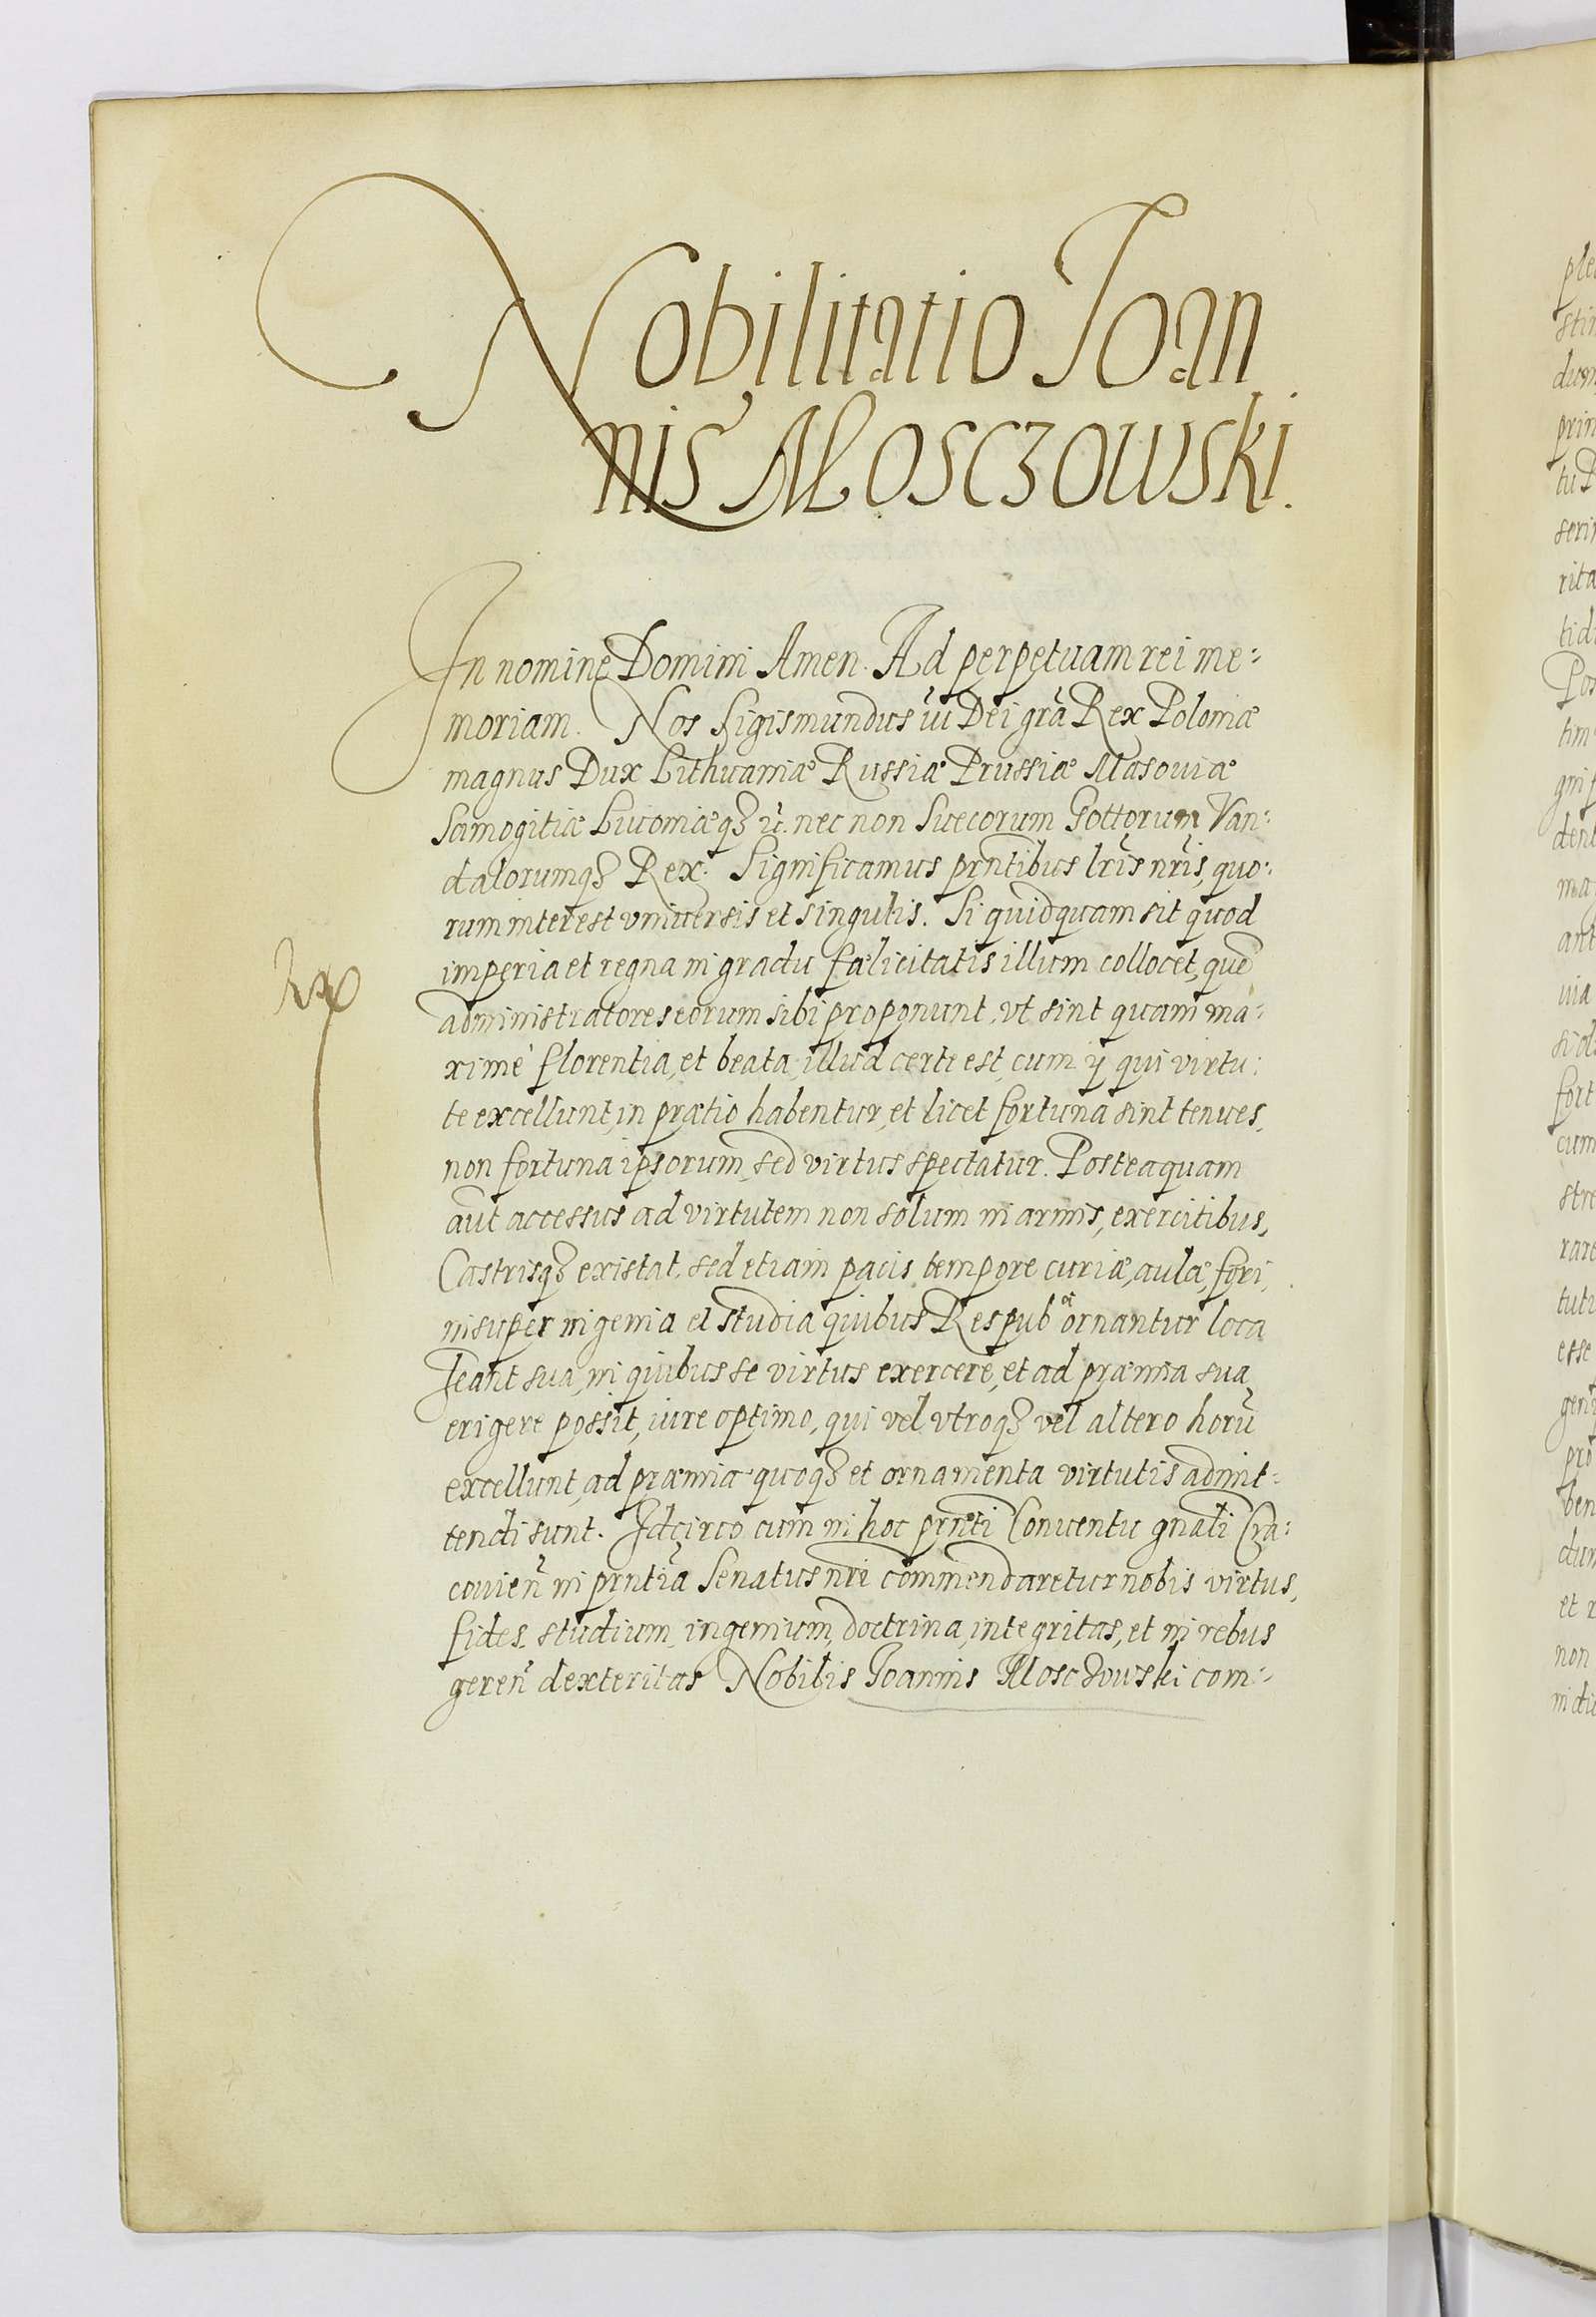 Nobilitatio Ioan
nis Mosczowski.
In nomine Domini Amen. Ad perpetuam rei me:
moriam. Nos Sigismundus iii Dei grã Rex Poloniæ
magnus Dux Lithuaniæ Russiæ Prussiæ Masouiæ
Samogitiæ Liuoniæqȝ etc. nec non Suecorum Gottorum Van:
dalorumqȝ Rex. Significamus prñtibus lris nris, quo:
rum interest vniuersis et singulis. Si quidquam sit quod
imperia et regna in gradu fælicitatis illum collocet, quẽ
administratores eorum sibi proponunt, vt sint quam ma:
ximè florentia, et beata, illud certe est, cum ij qui virtu:
te excellunt, in prætio habentur, et licet fortuna sint tenues,
non fortuna ipsorum, sed virtus spectatur. Posteaquam
aũt accessus ad virtutem non solum in armis, exercitibus,
Castrisqȝ existat, sed etiam pacis tempore curiæ, aulæ, fori,
insuper ingenia et studia quibus Respub ornantur loca
heant sua, in quibus se virtus exercere, et ad præmia sua
erigere possit, iure optimo, qui vel vtroqȝ vel altero horũ
excellunt, ad præmia quoqȝ et ornamenta virtutis admit:
tendi sunt. Idcirco cum in hoc prñti Conuentu gnali Cra:
couieñ in prñtia Senatus nri commendaretur nobis virtus,
fides, studium, ingenium, doctrina, integritas, et in rebus
gereñ dexteritas Nobilis Ioannis Mosczowski com: